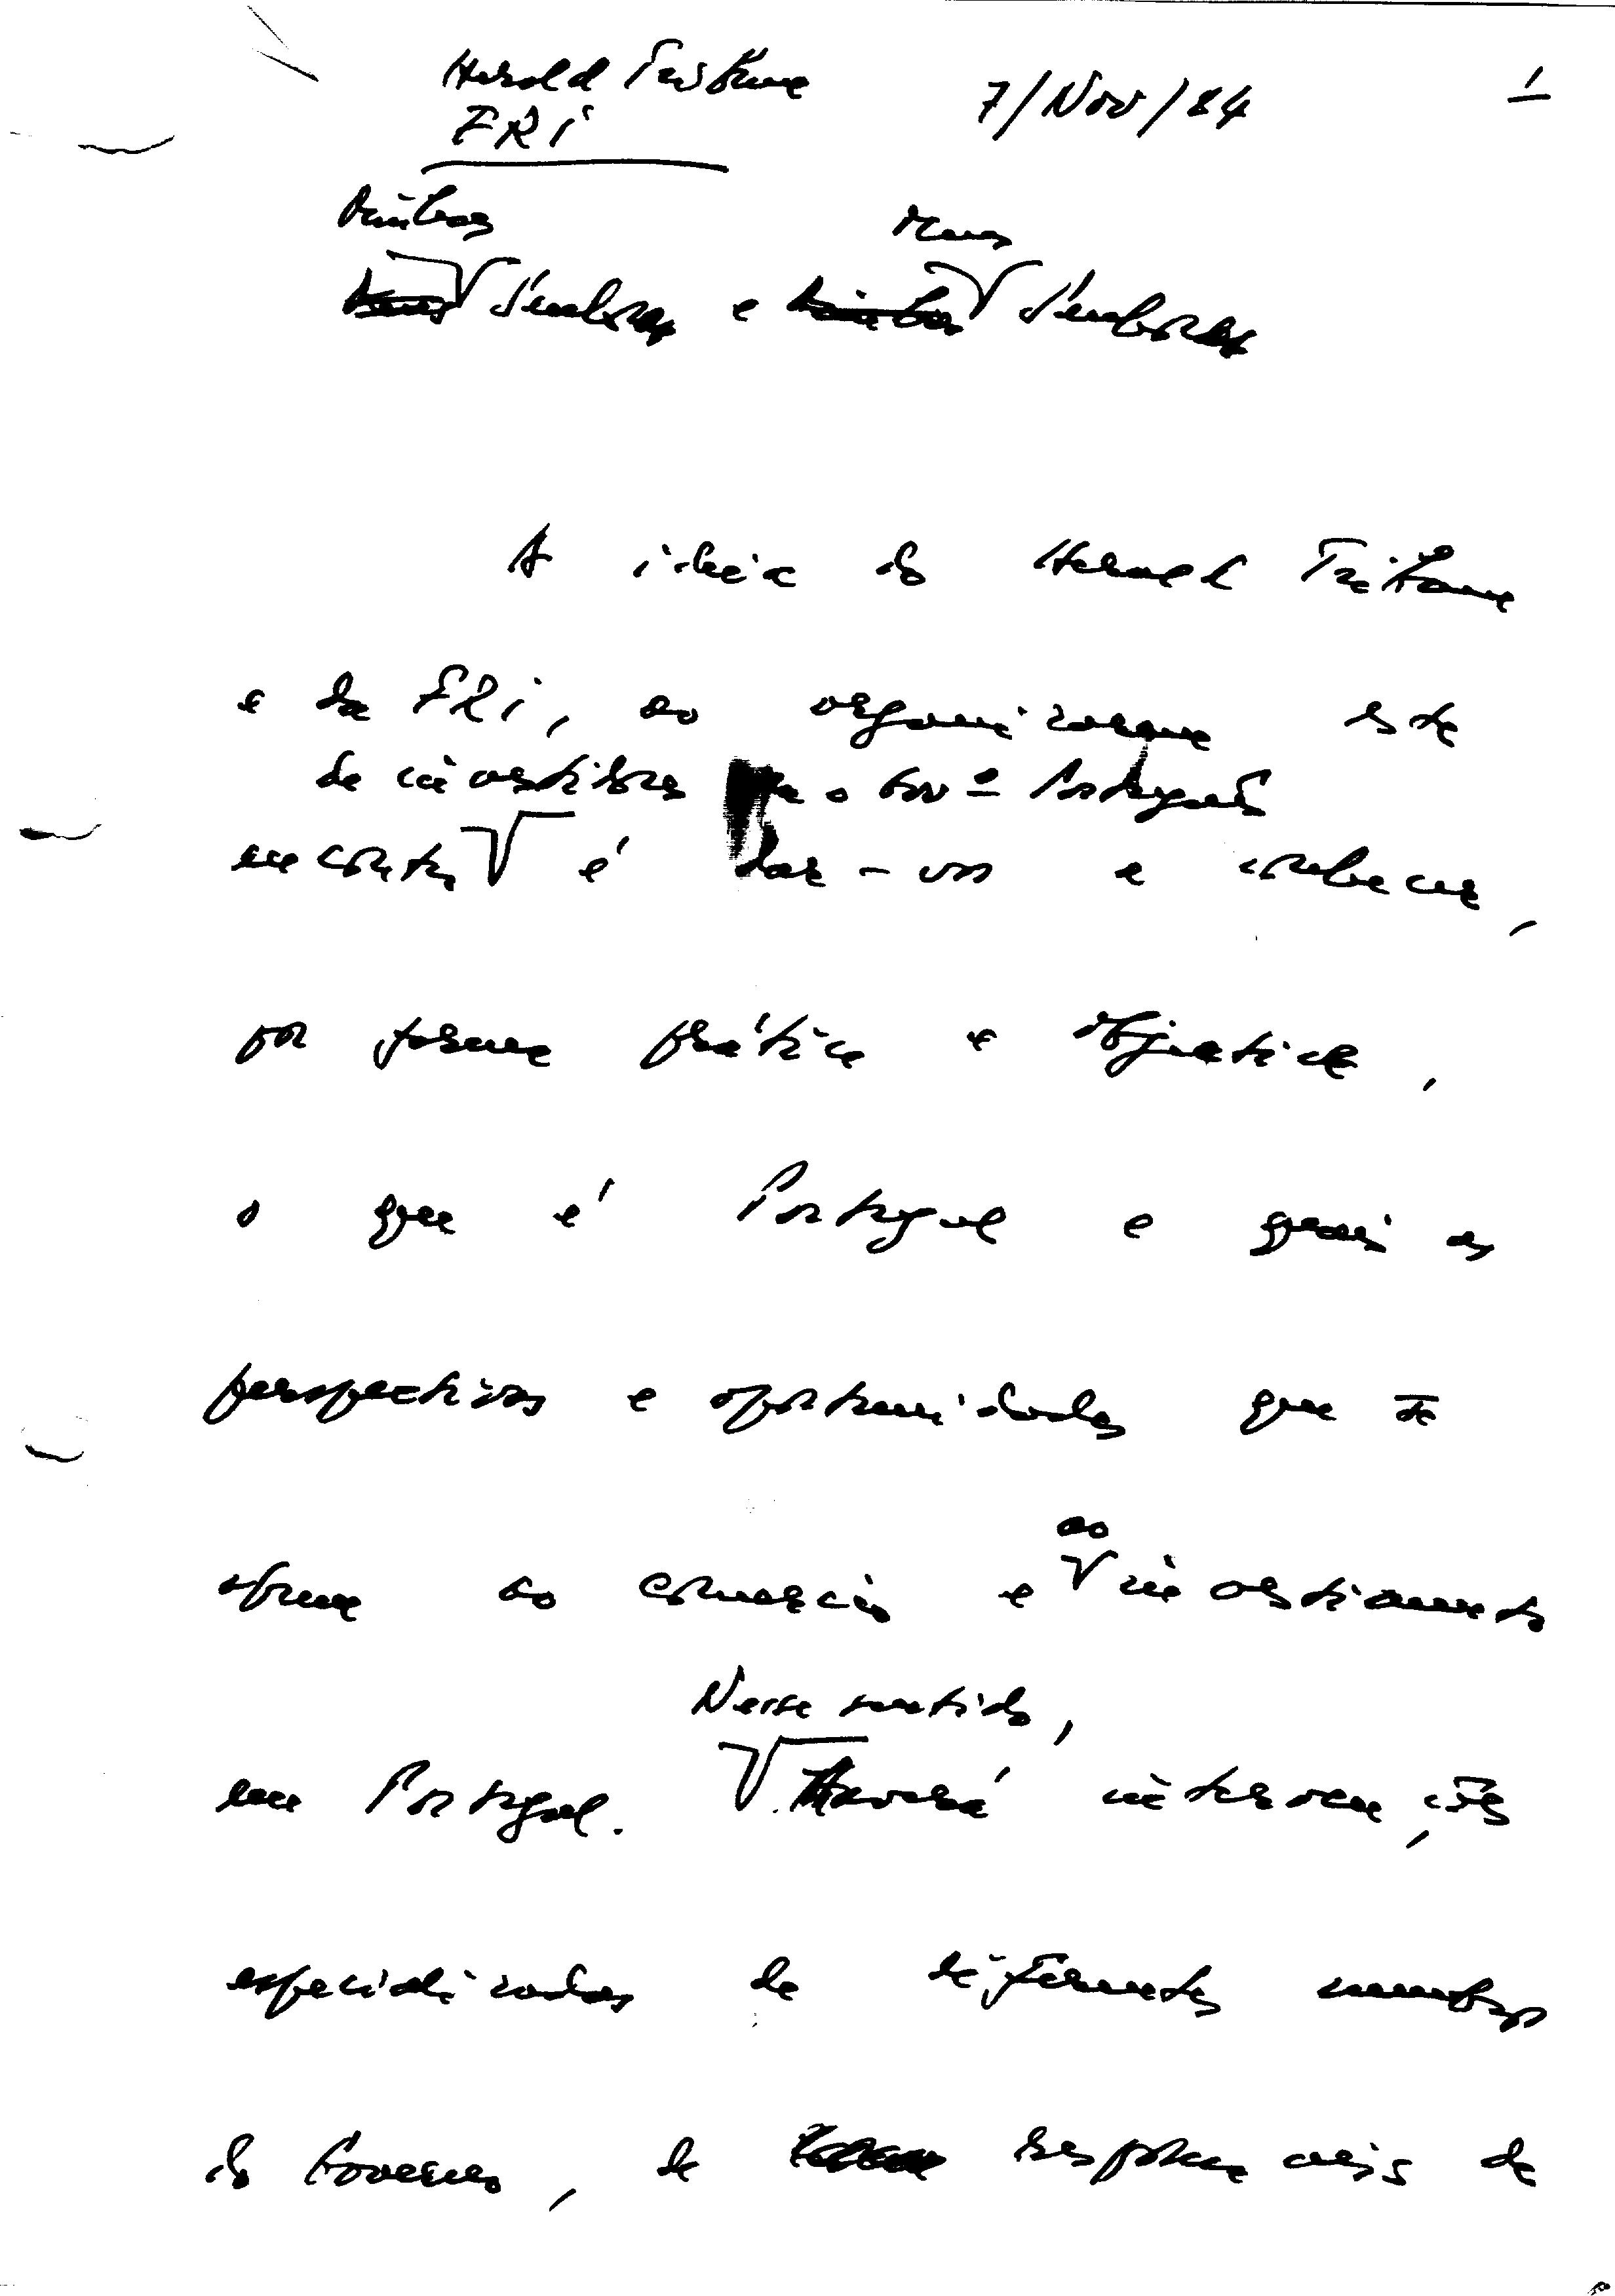 Herald Tribune 7/Nov/84 1
FRI
Minhas Meus
Senhoras e Senhores
A ideia do Herald Tribune
e da FRI, ao organizarem este
de investidores o Govº Português
encontro é dar-vos a conhecer,
por forma prática e objectiva,
o que é Portugal e quais as
perspectivas e oportunidades que se
abrem ao comércio e investimento
ao
Nesse sentido,
em Portugal. Haverá intervenções
especializadas de diferentes membros
do Governo, de responsáveis de